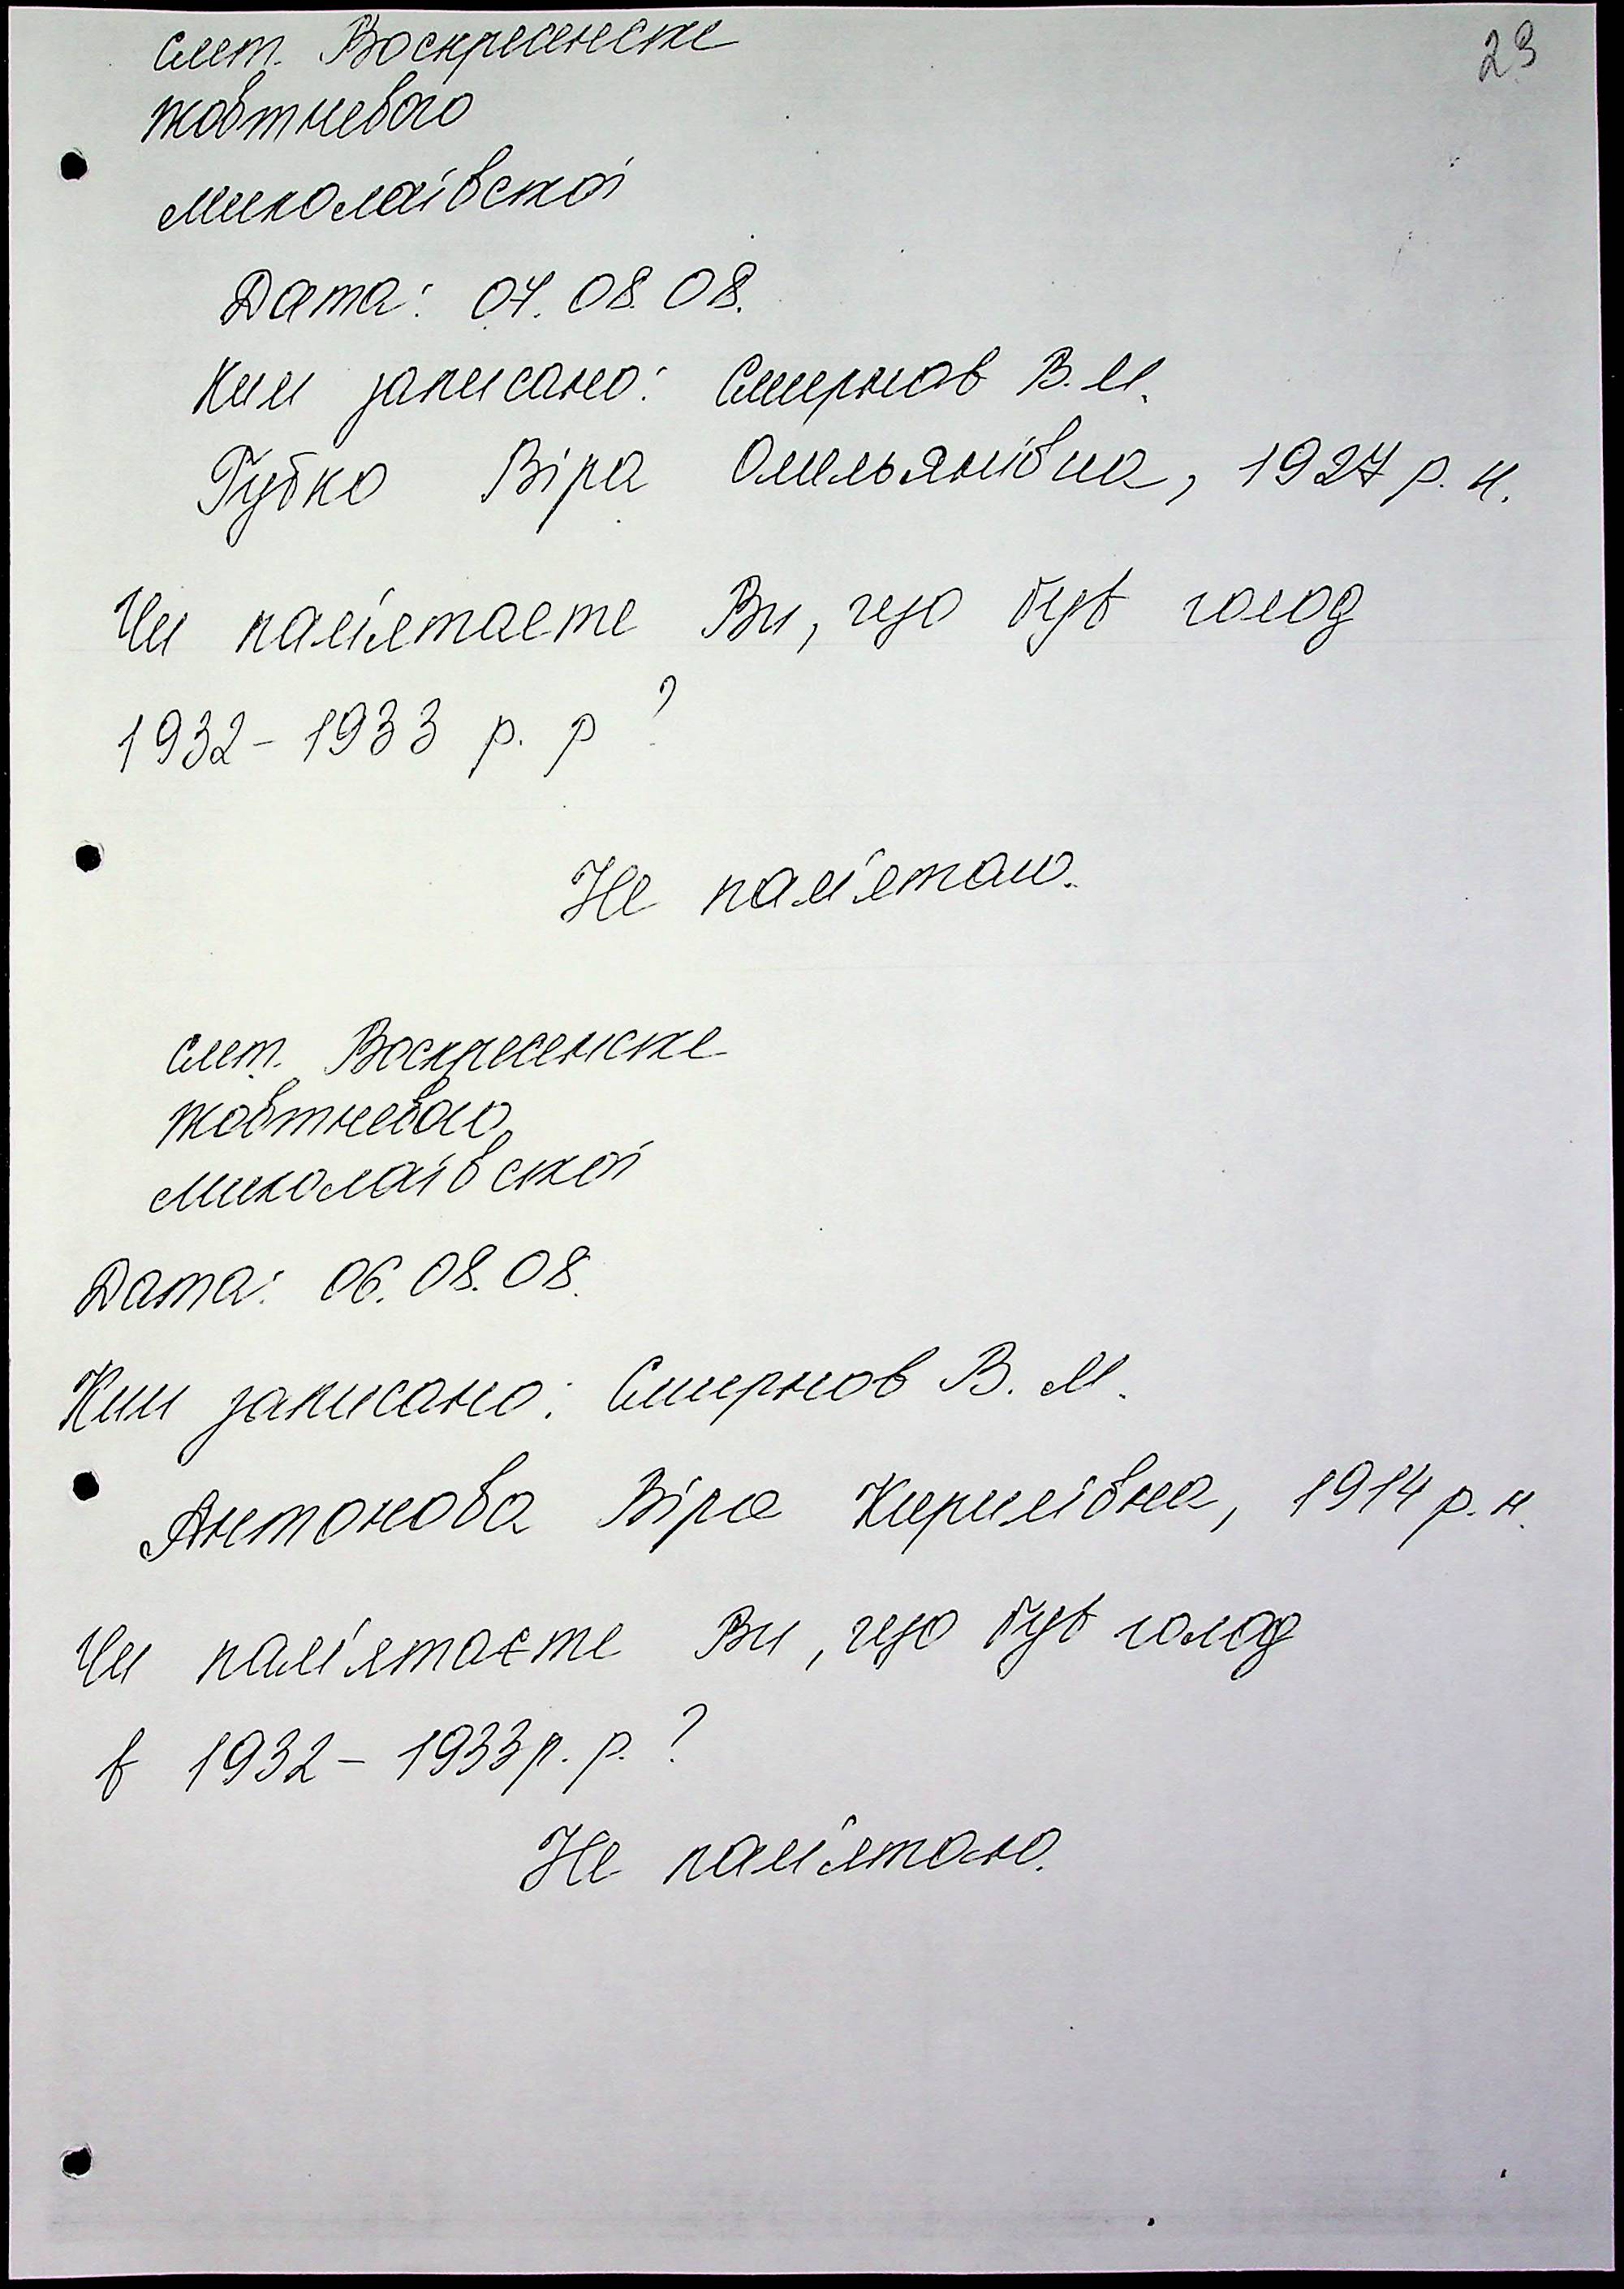 23
смт. Воскресенське
Жовтневого
Миколаївської
Дата: 04.08.08.
Ким записано: Смирнов В.М.
Губко Віра Омельянівна, 1927 р.н.
Чи пам'ятаєте Ви, що був голод
1932-1933 р. р ?
Не пам'ятаю.
смт. Воскресенське
Жовтневого
Миколаївської
Дата: 06.08.08.
Ким записано: Смирнов В. М.
Антонова Віра Кирилівна, 1914 р.н.
Чи пам'ятаєте Ви, що був голод
в 1932-1933 р. р. ?
Не пам'ятаю.